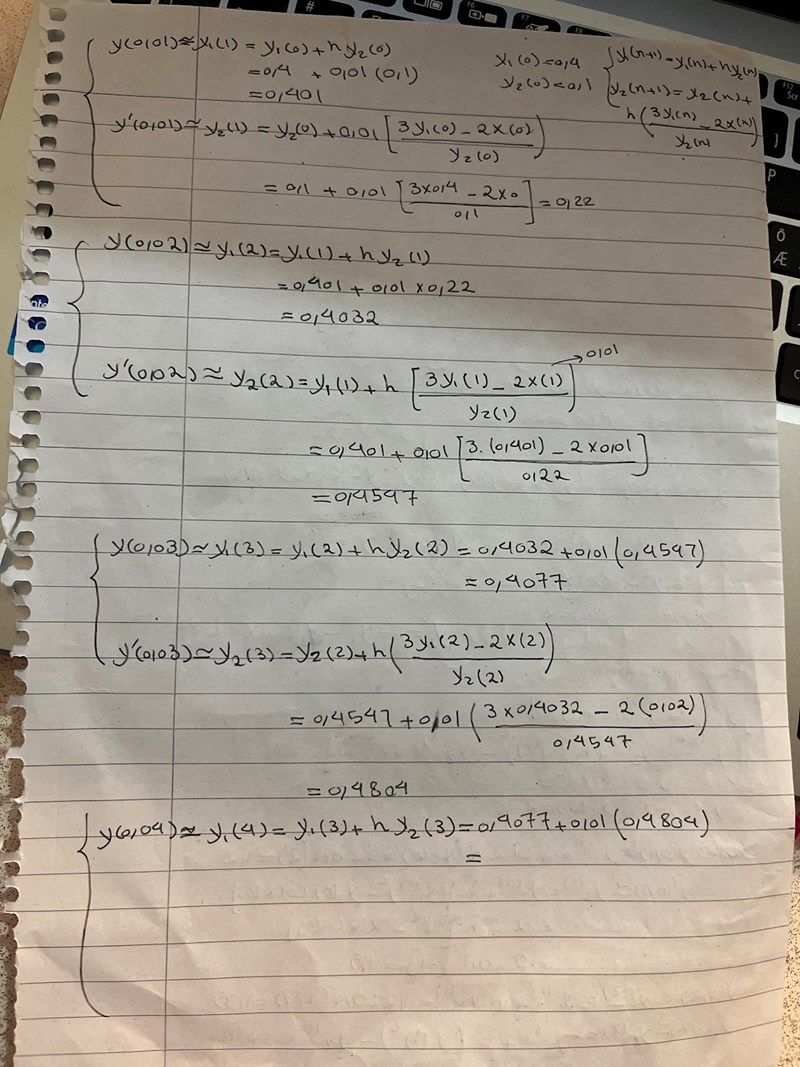 y(0,01) ≈ y₁(1) = y₁(0) + h y₂(0)
= 0,4 + 0,01 (0,1)
= 0,401
y₁(0) = 0,4
y₂(0) = 0,1
y₁(n+1) = y₁(n) + h y₂(n)
y₂(n+1) = y₂(n) +
h (3y₁(n) - 2x(n) / y₂(n))
y'(0,01) ≈ y₂(1) = y₂(0) + 0,01 [3y₁(0) - 2x(0) / y₂(0)]
= 0,1 + 0,01 [3x0,4 - 2x0 / 0,1] = 0,22
y(0,02) ≈ y₁(2) = y₁(1) + h y₂(1)
= 0,401 + 0,01 x 0,22
= 0,4032
→ 0,01
y'(0,02) ≈ y₂(2) = y₁(1) + h [3y₁(1) - 2x(1) / y₂(1)]
= 0,401 + 0,01 [3.(0,401) - 2x0,01 / 0,22]
= 0,4547
y(0,03) ≈ y₁(3) = y₁(2) + h y₂(2) = 0,4032 + 0,01 (0,4547)
= 0,4077
y'(0,03) ≈ y₂(3) = y₂(2) + h (3y₁(2) - 2x(2) / y₂(2))
= 0,4547 + 0,01 (3x0,4032 - 2(0,02) / 0,4547)
= 0,4804
y(0,04) ≈ y₁(4) = y₁(3) + h y₂(3) = 0,4077 + 0,01 (0,4804)
=
#
F6
F7
F12
Scr
}
P
Ö
Æ